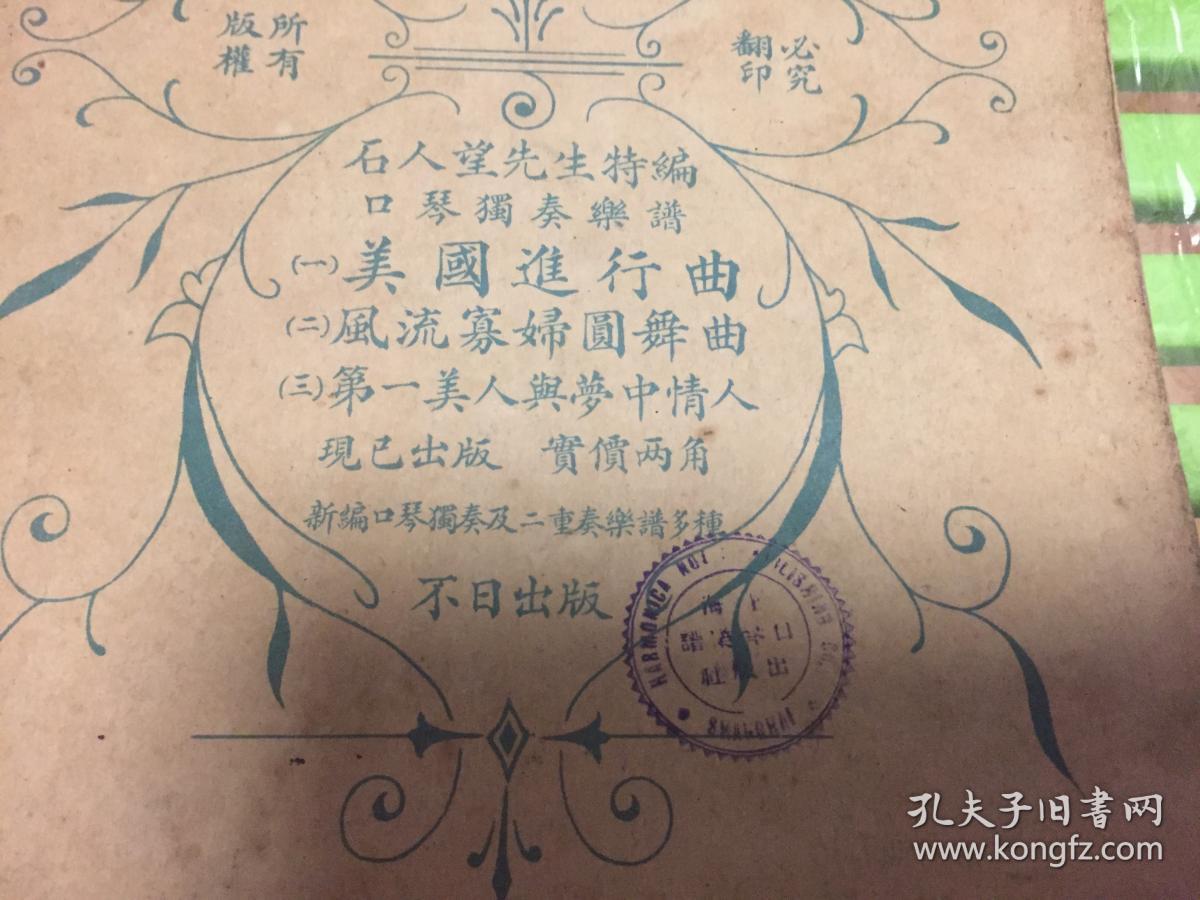 版權所有
翻印必究
石人望先生特編
口琴獨奏樂譜
(一)美國進行曲
(二)風流寡婦圓舞曲
(三)第一美人與夢中情人
現已出版 實價两角
新編口琴獨奏及二重奏樂譜多種
不日出版
HARMONICA
SHANGHAI
孔夫子旧書网
www.kongfz.com